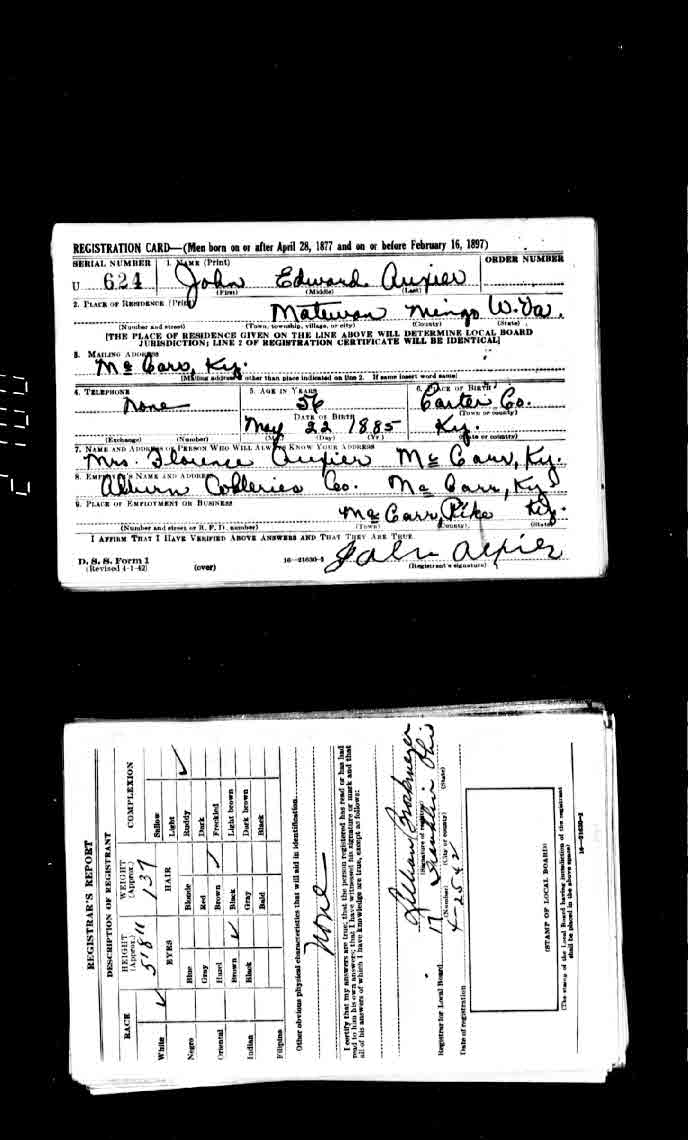 REGISTRATION CARD—(Men born on or after April 28, 1877 and on or before February 16, 1897)
SERIAL NUMBER 1. NAME (Print) ORDER NUMBER
U 624 John Edward Auxier
(First) (Middle) (Last)
2. PLACE OF RESIDENCE (Print)
Matewan Mingo W. Va.
(Number and street) (Town, township, village, or city) (County) (State)
[THE PLACE OF RESIDENCE GIVEN ON THE LINE ABOVE WILL DETERMINE LOCAL BOARD
JURISDICTION; LINE 2 OF REGISTRATION CERTIFICATE WILL BE IDENTICAL]
3. MAILING ADDRESS
Mc Carr, Ky.
[Mailing address if other than place indicated on line 2. If same insert word same]
4. TELEPHONE 5. AGE IN YEARS 6. PLACE OF BIRTH
None 56 Carter Co.
DATE OF BIRTH (Town or county)
May 22 1885 Ky.
(Exchange) (Number) (Mo.) (Day) (Yr.) (State or country)
7. NAME AND ADDRESS OF PERSON WHO WILL ALWAYS KNOW YOUR ADDRESS
Mrs. Florence Auxier Mc Carr, Ky.
8. EMPLOYER'S NAME AND ADDRESS
Alburn Colleries Co. Mc Carr, Ky
9. PLACE OF EMPLOYMENT OR BUSINESS
Mc Carr, Pike Ky.
(Number and street or R. F. D. number) (Town) (County) (State)
I AFFIRM THAT I HAVE VERIFIED ABOVE ANSWERS AND THAT THEY ARE TRUE.
D. S. S. Form 1
(Revised 4-1-42) (over) 16—21630-2 John Auxier
(Registrant's signature)
REGISTRAR'S REPORT
DESCRIPTION OF REGISTRANT
RACE HEIGHT (Approx.) WEIGHT (Approx.) COMPLEXION
5' 8" 137
White ✓ EYES HAIR Sallow
Light
Negro Blue Blonde Ruddy ✓
Gray Red Dark
Oriental Hazel Brown ✓ Freckled
Brown ✓ Black Light brown
Indian Black Gray Dark brown
Bald Black
Filipino
Other obvious physical characteristics that will aid in identification
None
I certify that my answers are true; that the person registered has read or has had
read to him his own answers; that I have witnessed his signature or mark and that
all of his answers of which I have knowledge are true, except as follows:
Lillian
(Signature of registrar)
Registrar for Local Board 17 Ohio
(Number) (City or county) (State)
Date of registration 4-25-42
(STAMP OF LOCAL BOARD)
(The stamp of the Local Board having jurisdiction of the registrant
shall be placed in the above space)
16—21630-2